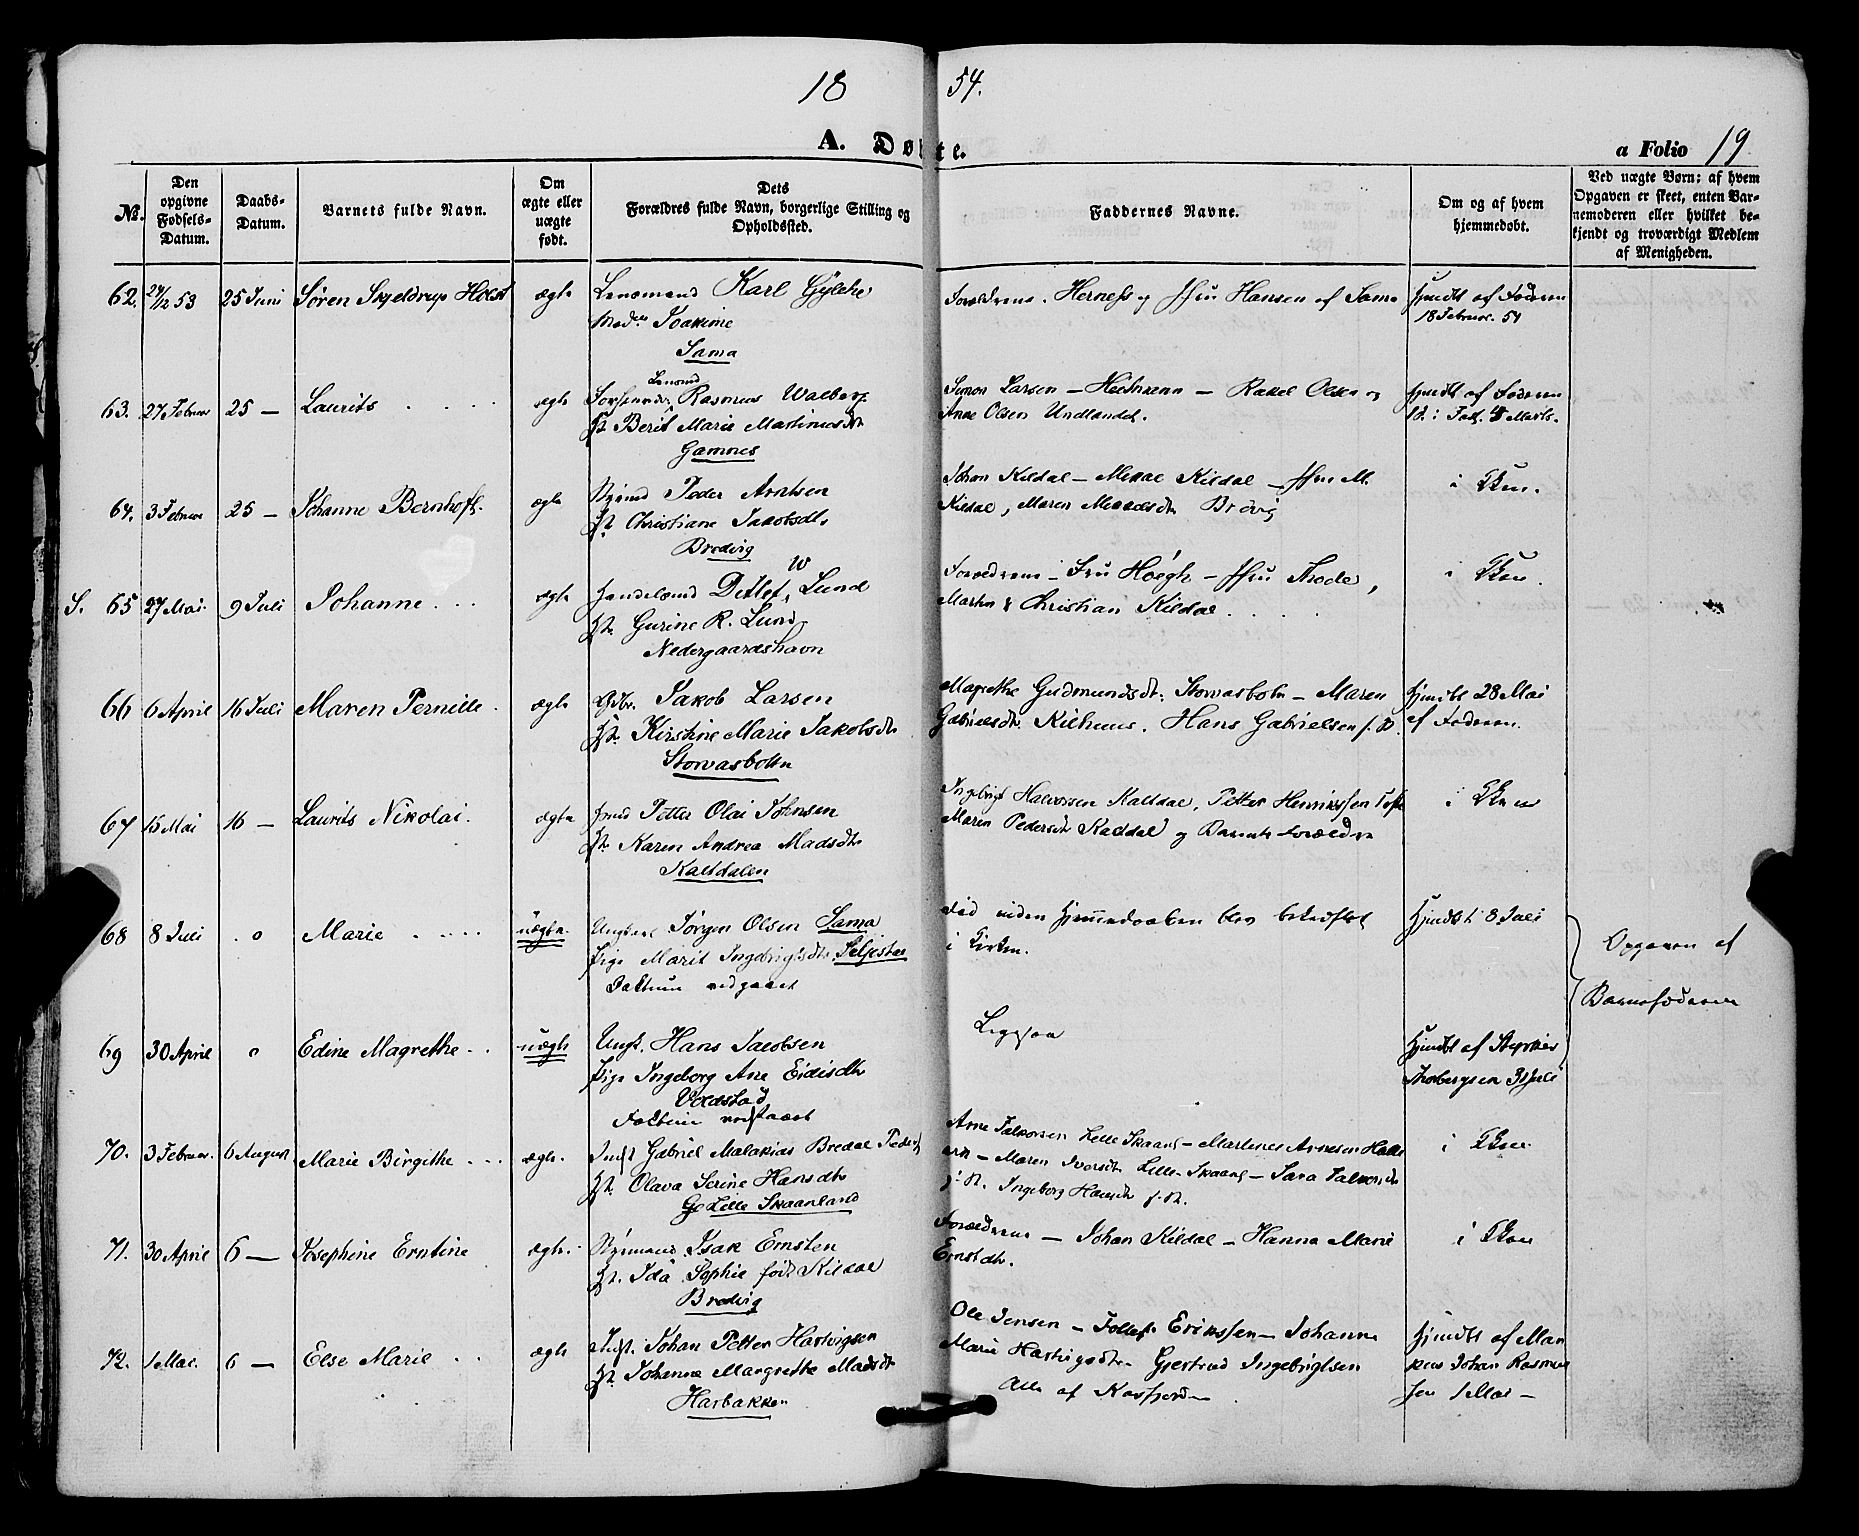 18 54.
A. Døbte.
a Folio 19
№.
Den opgivne Fødsels-Datum.
Daabs-Datum.
Barnets fulde Navn.
Om ægte eller uægte født.
Dets Forældres fulde Navn, borgerlige Stilling og Opholdssted.
Faddernes Navne.
Om og af hvem hjemmedøbt.
Ved uægte Børn; af hvem Opgaven er skeet, enten Barnemoderen eller hvilket bekjendt og troværdigt Medlem af Menigheden.
62. 27/12 53 25 Juni Søren Skjeldrup Holst ægte Lensmand Karl Gylche
Joakime
Sama
Forældrene. Hernes og Hansen af Sama
hjemdbt af Faderen
18 Februar. 54
63. 27 Februar 25 — Laurits ægte Rasmus Walberg
Berit Marie Martinusdtr
Gamnes
Simon Larsen — Rakel Olsen og
Ane Olsen Undlandet.
hjemdbt af Faderen
64. 3 Februar 25 — Johanne Bernhoft. ægte Peder Arntsen
Christiane Jakobsdtr
Bredvig
Johan Kildal — Mikal Kildal —
Kildal, Maren
i Kken.
S. 65 27 Mai. 9 Juli Johanne ægte Handelsmd Detlef W Lund
Gurine R. Lund
Nedergaardshavn
Forældrene — Fru Høegh —
Christian Kildal
i Kken.
66 6 April 16 Juli Maren Pernille ægte Jakob Larsen
Kirstine Marie Jakobsdtr
Storvasbotn
Magrethe Gudmundsdtr Storvasbotn — Maren
Gabrielsdtr Kilhuus. Hans Gabrielsen
hjemdbt 28 Mai
af Faderen.
67 15 Mai 16 — Laurits Nikolai. ægte Petter Olai Johnsen
Karen Andrea Madsdtr
Kaldalen
Ingebrigt Halvorsen Kaldal, Petter Henrikssen
Maren Pedersdtr Kaldal og Barnets Forældre
i Kken
68 8 Juli o Marie uægte. Ungkarl Jørgen Olsen Sama
Pige Marit Ingebrigtsdtr Seljestad
Faktum vedgaaet
død inden Hjemmedaaben blev bekræftet
i Kirken.
Hjemdbt 8 Juli
Opgaven af
Barnefaderen
69 30 April o Edine Magrethe uægte Ungk. Hans Jacobsen
Pige Ingeborg Ane Eidisdtr
Faktum vedgaaet
Ligesaa
Hjemdbt af Styrker
Thorbergsen
70. 3 Februar. 6 August Marie Birgithe ægte. Indst Gabriel Malakias Bredal
Olava Serine Hansdtr
Lille Skaanland
Arne Lille Skaanl — Martines Arnesen
Maren Iversdtr Lille Skaanl — Sara
Ingeborg Hansdtr
i Kken
71. 30 April 6 — Josephine Erntine ægte. Isak Ernsten
Ida Sophie født Kildal
Bredvig
Forældrene — Johan Kildal — Hanna Marie
Ernstdtr.
i Kken
72. 1 Mai. 6 — Else Marie ægte Indst. Johan Petter Hartvigsen
Johanna Margrethe Madsdtr
Harbakken
Ole Jensen — Erikssen — Johanna
Marie Hartvigsdtr — Gjertrud Ingebrigtsen
Alle af Kasfjorden
hjemdbt af Mar
kus Johan Rasmus
sen 1 Mai —